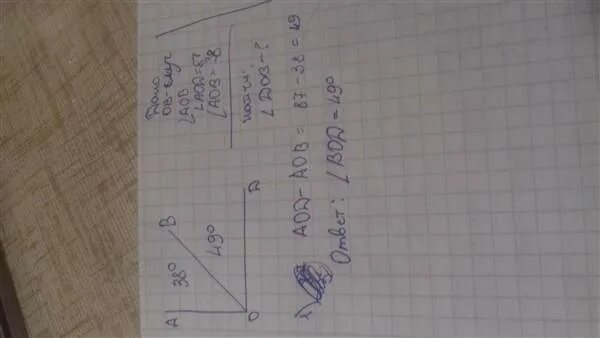 Дано
OB-внут
∠AOB
∠AOD=87
∠AOB=38
Найти:
∠DOB-?
A
38°
B
49°
O
D
AOD-AOB=87-38=49
Ответ: ∠BOD=49°